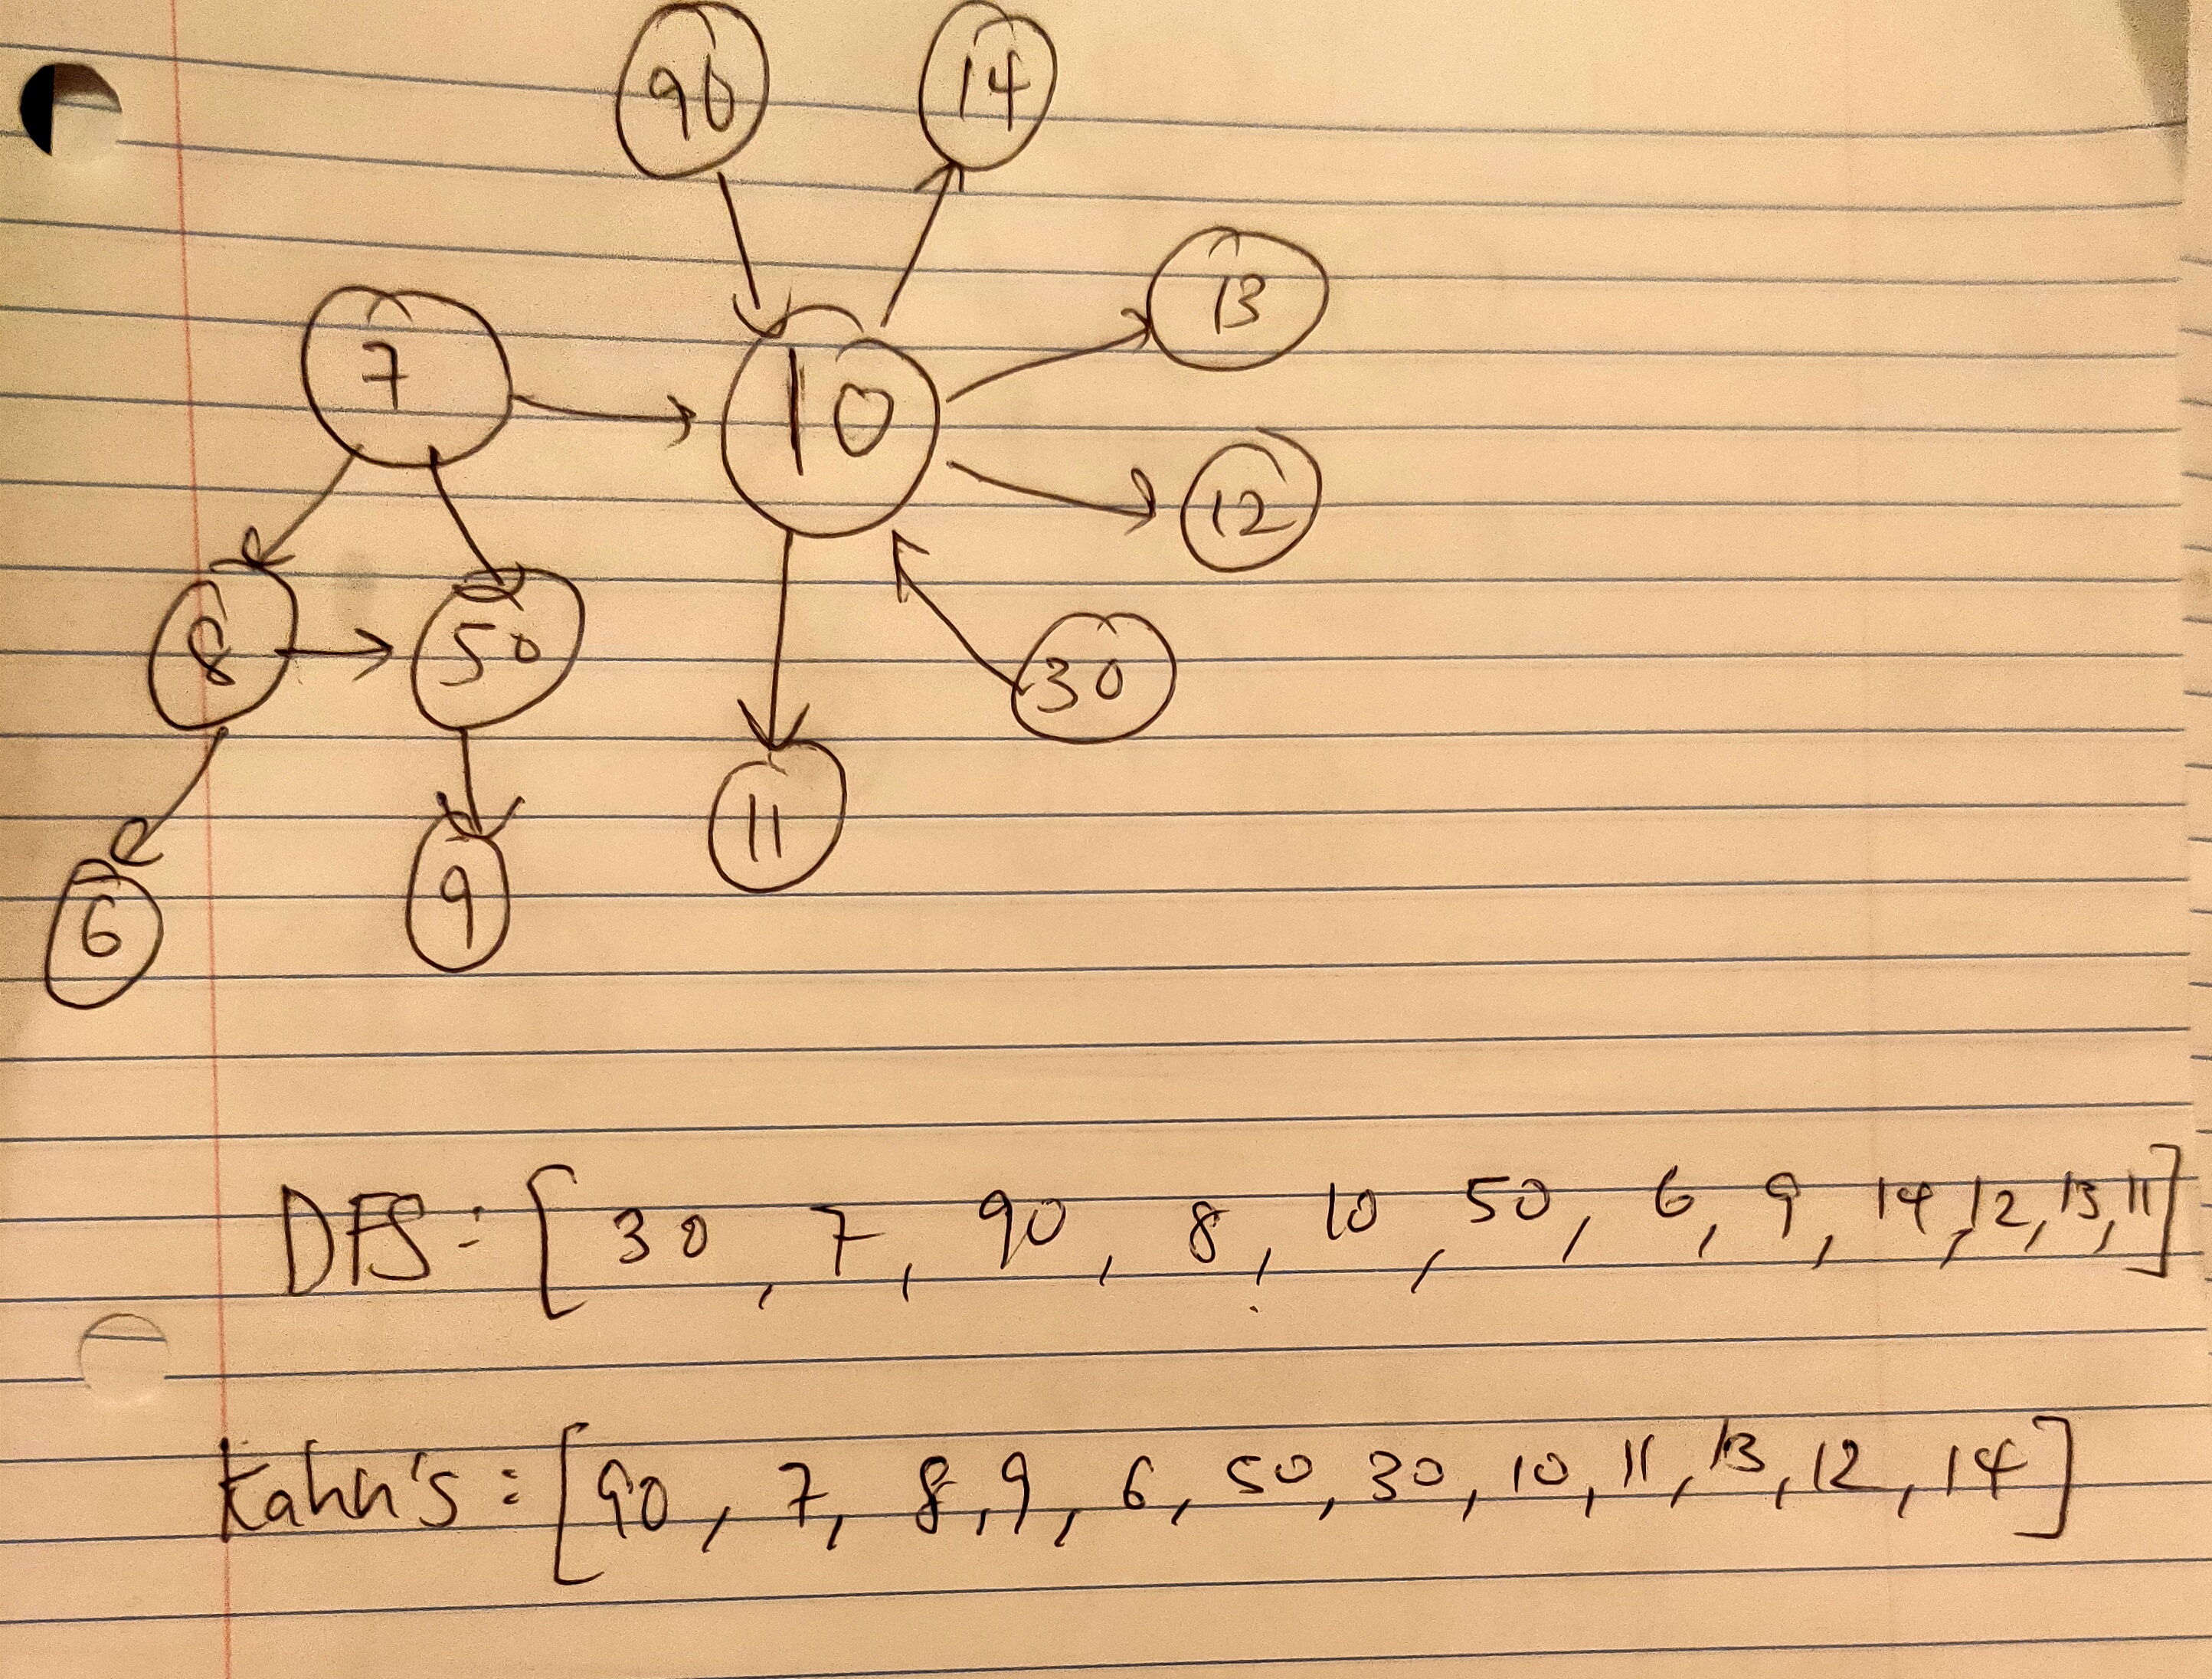 90 14
13
7 10
12
8 50 30
11
6 9
DFS: [30, 7, 90, 8, 10, 50, 6, 9, 14, 12, 13, 11]
Kahn's: [90, 7, 8, 9, 6, 50, 30, 10, 11, 13, 12, 14]